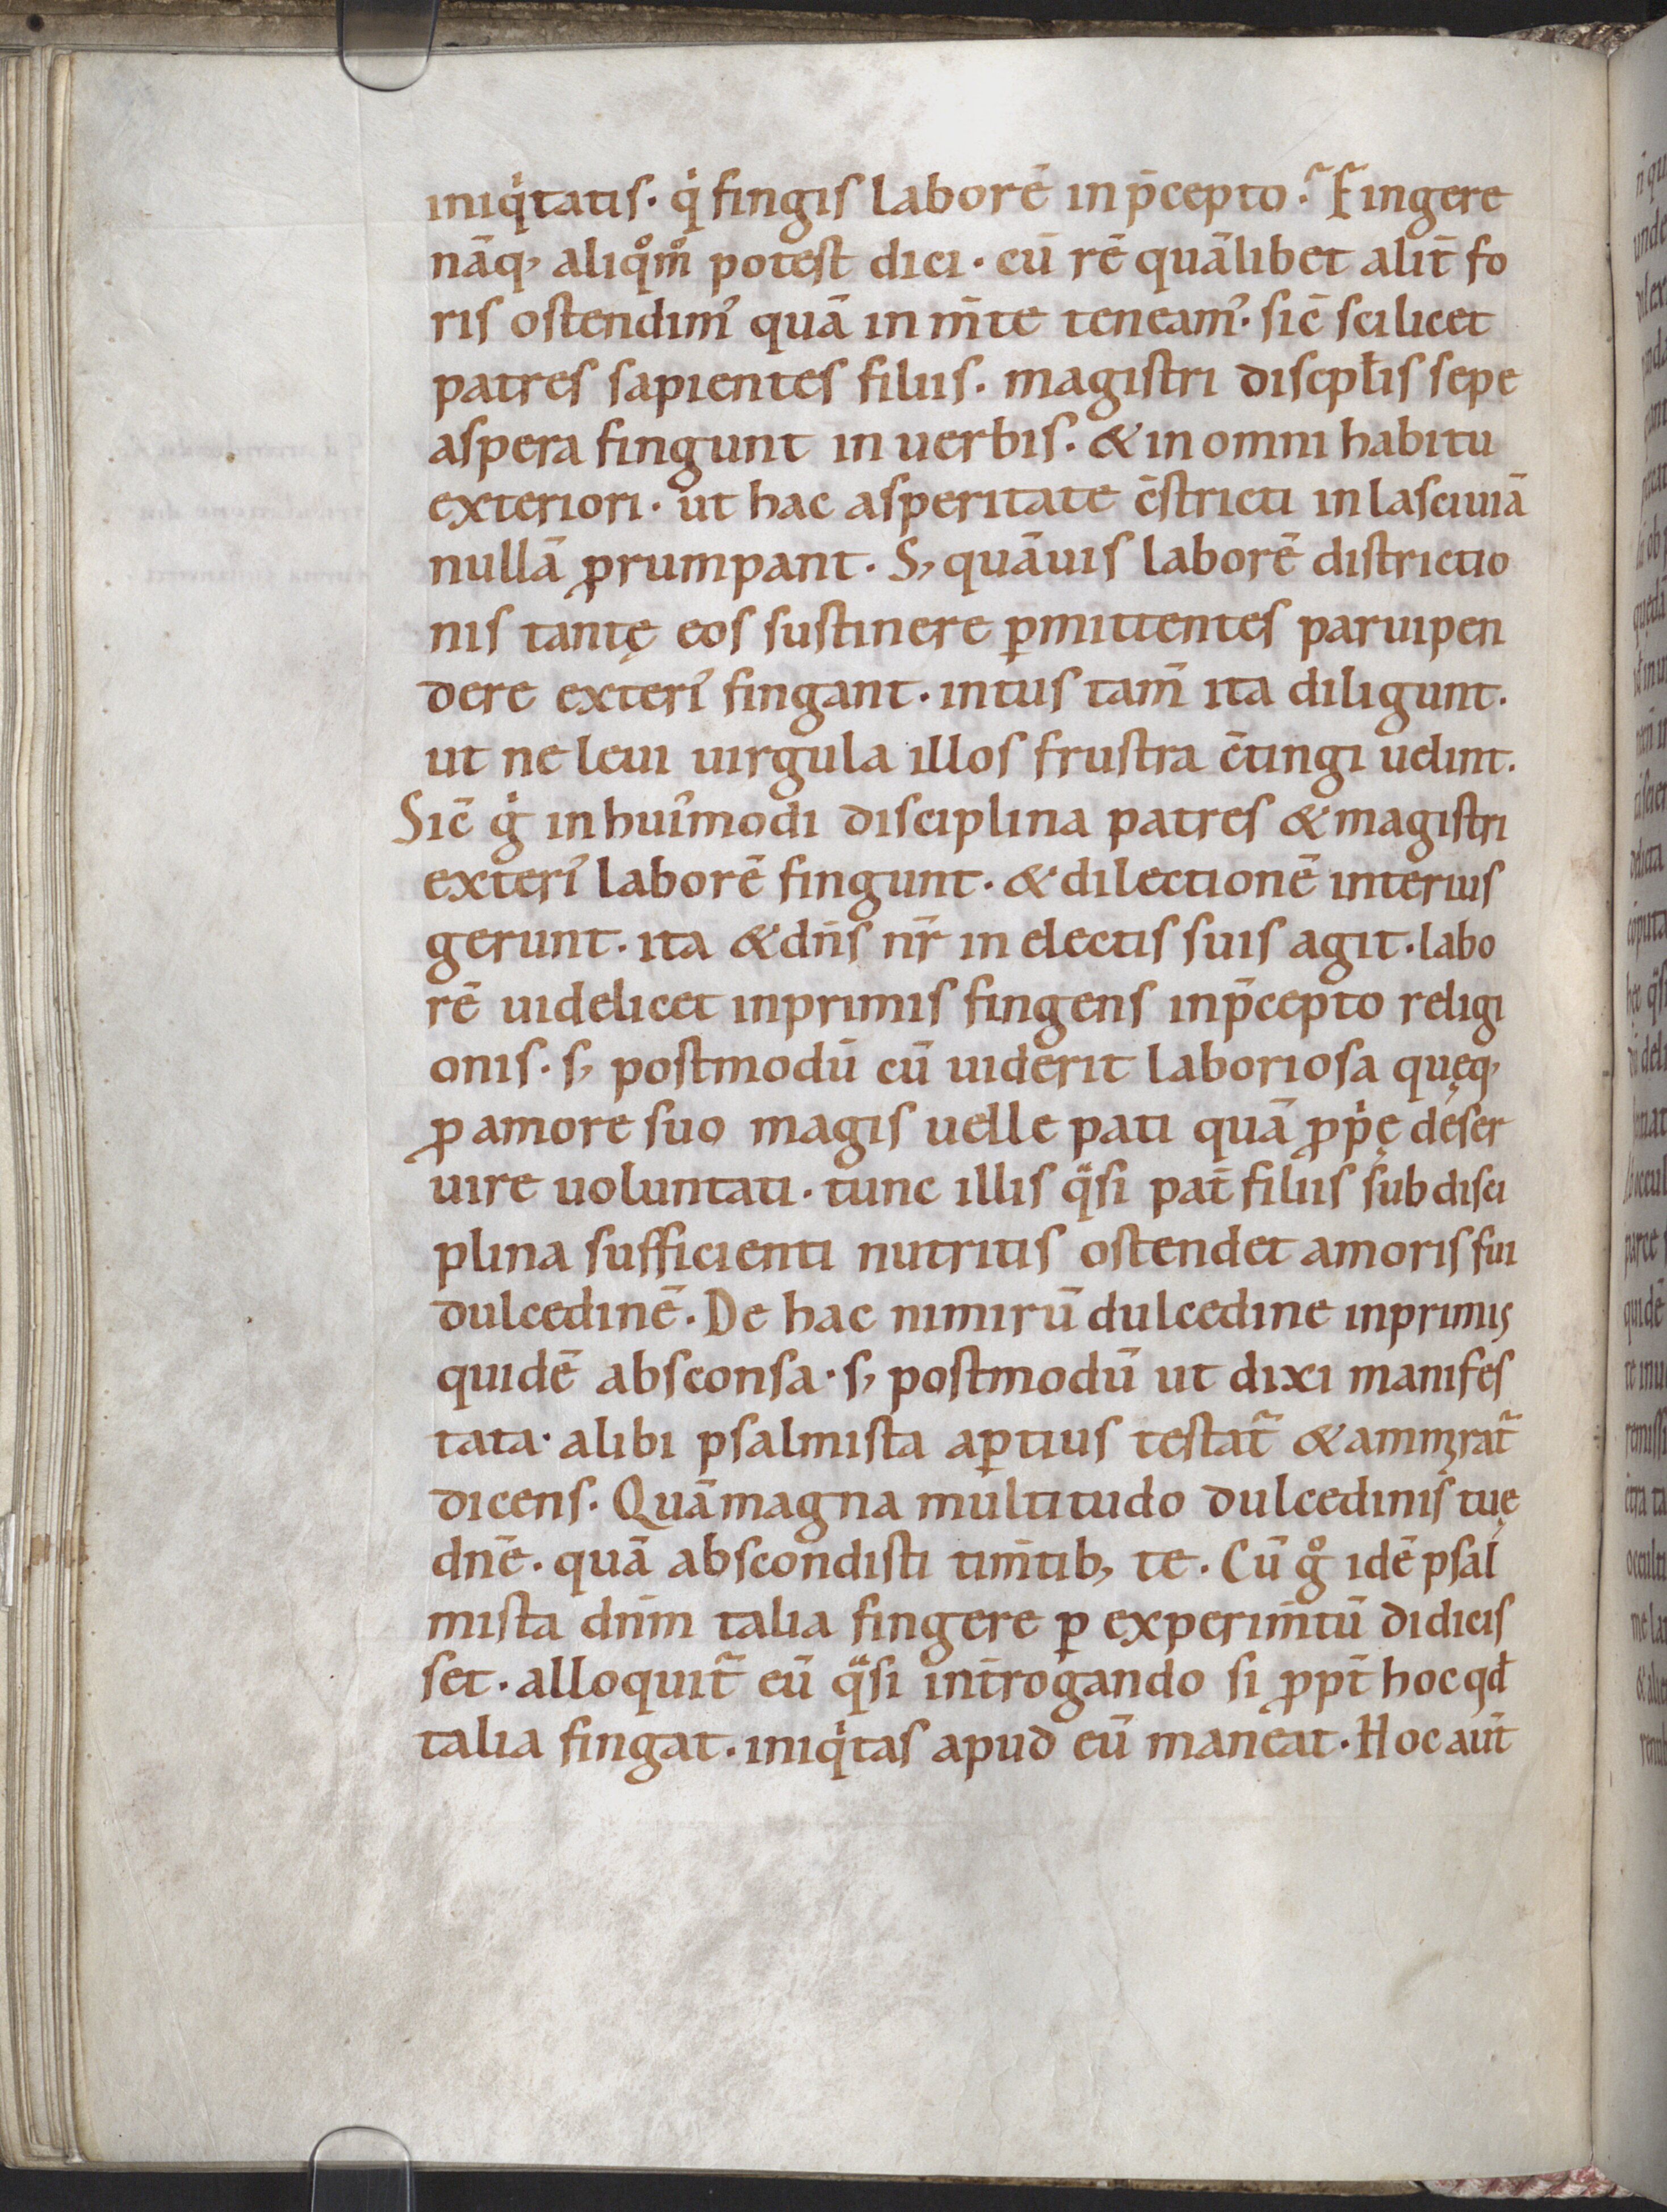 iniqͥtatis· qͥ fingis laborē in p̄cepto? Fingere
nāq, aliqͦmͦ potest dici· cū rē quālibet alit̄ fo
ris ostendim᾽ quā in m̄te teneam᾽· sic̄ scilicet
patres sapientes filiis· magistri discipłis sepe
aspera fingunt in uerbis· & in omni habitu
exteriori· ut hac asperitate c̄stricti in lasciuiā
nullā ꝓrumpant· S, quāuis laborē districtio
nis tantę eos sustinere ꝑmittentes paruipen
dere exteri᾽ fingant· intus tam̄ ita diligunt·
ut ne leui uirgula illos frustra c̄tingi uelint·
Sic̄ gͥ in hui᾽modi disciplina patres & magistri
exteri᾽ laborē fingunt· & dilectionē interius
gerunt· ita & dn̄s nr̄ in electis suis agit· labo
rē uidelicet inprimis fingens in p̄cepto religi
onis· s, postmodū cū uiderit laboriosa quęq,
ꝓ amore suo magis uelle pati quā ꝓpͥę deser
uire uoluntati· tunc illis qͣsi pat̄ filiis sub disci
plina sufficienti nutritis ostendet amoris sui
dulcedinē· De hac nimirū dulcedine inprimis
quidē absconsa· s, postmodū ut dixi manifes
tata· alibi psalmista aꝑtius testat̃ & ammirat̃
dicens· Quā magna multitudo dulcedinis tuę
dn̄e· quā abscondisti tim̄tib, te· Cū gͦ idē psal
mista dnm̄ talia fingere ꝑ experim̄tū didicis
set· alloquit̃ eū qͣsi int̄rogando si ꝓpt̄ hoc qđ
talia fingat· iniqͥtas apud eū maneat· Hoc aut̄